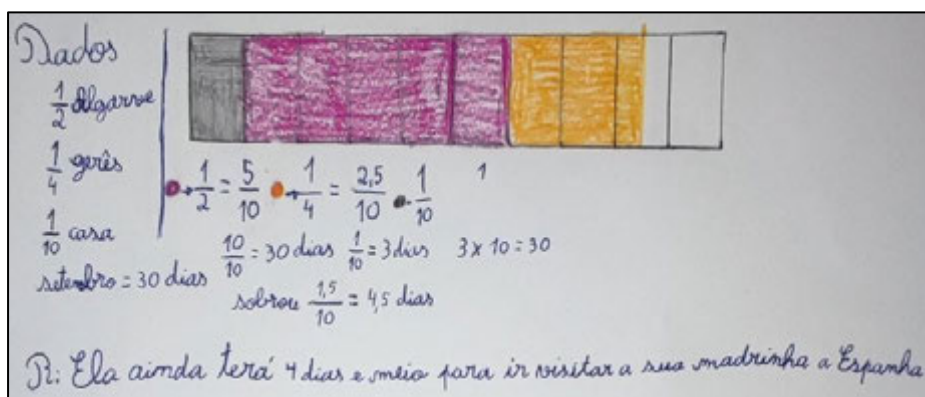 Dados
1/2 Algarve
1/4 gerês
1/10 casa
setembro = 30 dias
→ 1/2 = 5/10 → 1/4 = 2,5/10 - 1/10 1
10/10 = 30 dias 1/10 = 3 dias 3 x 10 = 30
sobrou 1,5/10 = 4,5 dias
R: Ela ainda terá 4 dias e meio para ir visitar a sua madrinha a Espanha